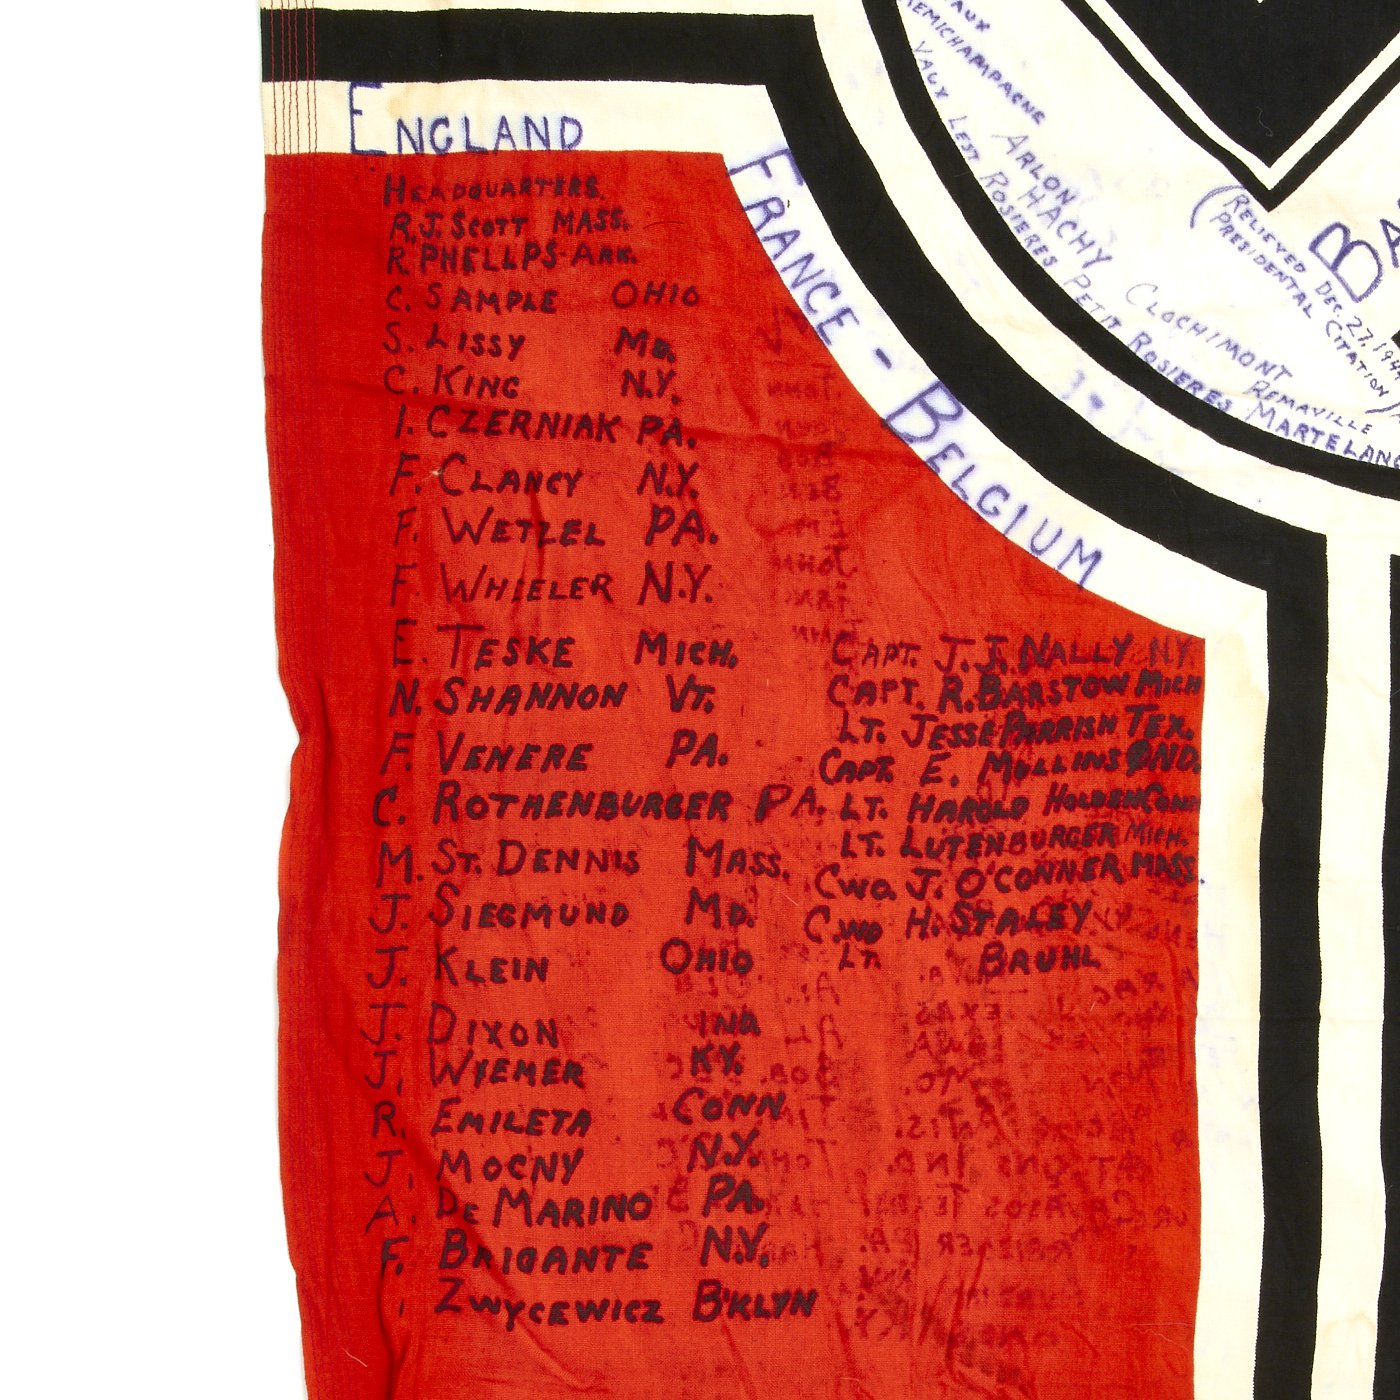 ENGLAND
HEADQUARTERS.
R.J. SCOTT MASS.
R. PHELLPS ARK.
C. SAMPLE OHIO
S. LISSY MD.
C. KING N.Y.
I. CZERNIAK PA.
F. CLANCY N.Y.
F. WETZEL PA.
F. WHEELER N.Y.
E. TESKE MICH.
N. SHANNON VT.
F. VENERE PA.
C. ROTHENBURGER PA.
M. ST. DENNIS MASS.
J. SIEGMUND MD.
J. KLEIN OHIO
J. DIXON IND.
J. WYEMER KY.
R. EMILETA CONN.
J. MOCNY N.Y.
A. DE MARINO PA.
F. BRIGANTE N.Y.
ZWYCEWICZ B'KLYN
CAPT. J.J. NALLY N.Y.
CAPT. R. BARSTOW MICH
LT. JESSE PARRISH TEX.
CAPT. E. MULLINS IND.
LT. HAROLD HOLDEN CONN
LT. LUTENBURGER MICH.
CWO. J. O'CONNER MASS.
C.WO H. STALEY
LT. BRUHL
FRANCE - BELGIUM
REMICHAMPAGNE
VAUX LEST ROSIERES PETIT ROSIERES MARTELANG
ARLON
HACHY
CLOCHIMONT
REMAVILLE
(RELIEVED DEC. 27, 1944
PRESIDENTAL CITATION)
BA